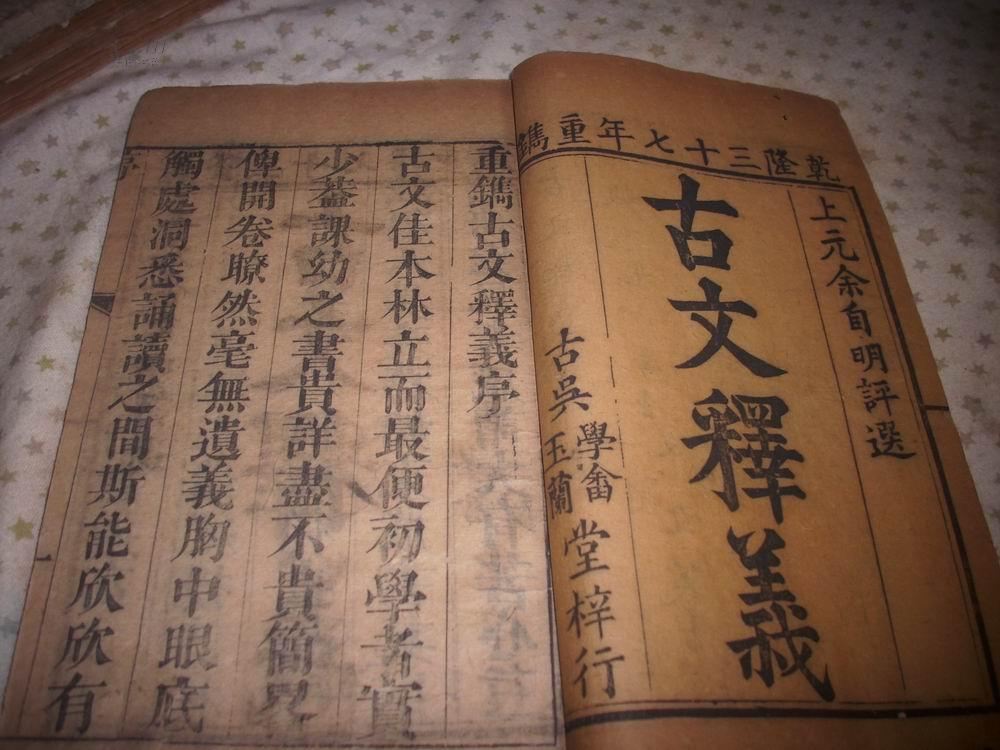 乾隆三十七年重鐫
上元余自明評選
古文釋義
古吳學畬玉蘭堂梓行
重鐫古文釋義序
古文佳本林立而最便初學者實
少蓋課幼之書貴詳盡不貴簡畧
俾開卷瞭然毫無遺義胸中眼底
觸處洞悉誦讀之間斯能欣欣有